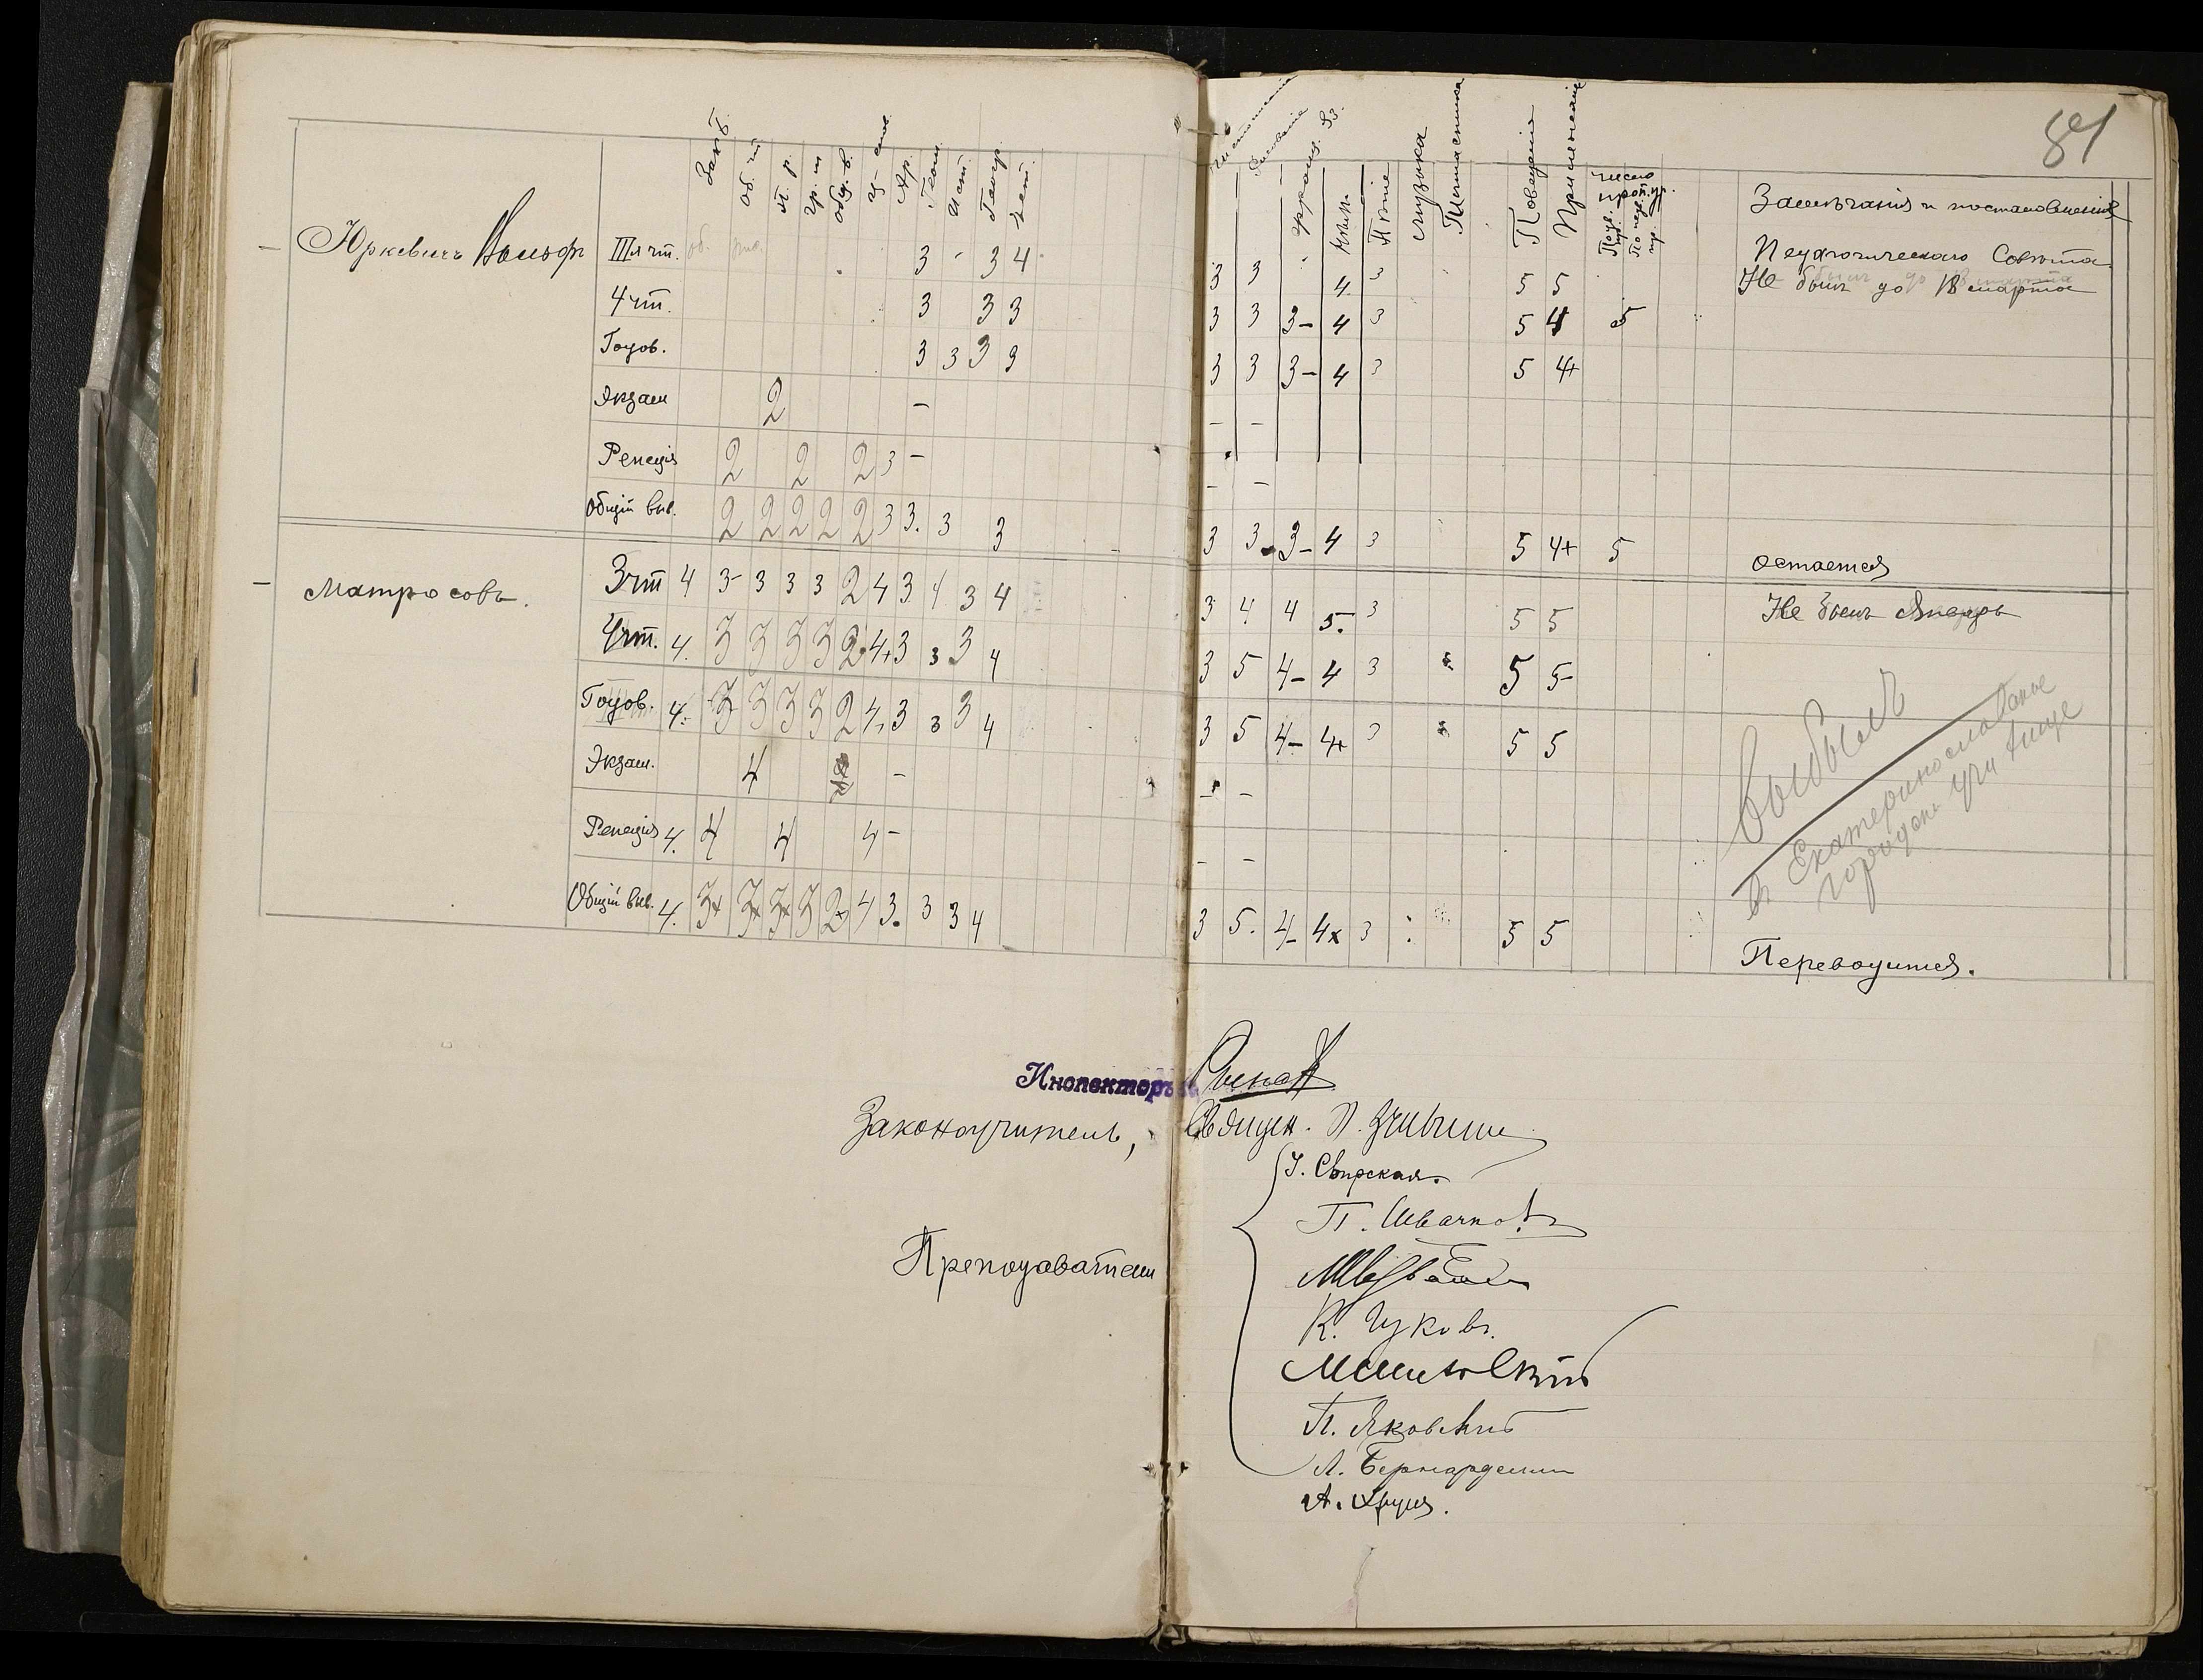 84
Зак. Б.
об. чт
п. р.
гр. т
общ. в.
ц-слов.
Ар.
Геом.
Ист.
Геогр.
Чистописаніе
Рисованіе
Франц. яз.
Нѣм.
Пѣніе
Музыка
Гимнастика
Поведеніе
Прилежаніе
Число проп. ур.
По ув. пр.
По неув. пр.
Замѣчанія и постановленія
Педагогическаго Совѣта
Юркевичъ Вольфъ
III я чт. 3 - 3 4 3 3 4. 3 5 5 Не былъ до 18 марта
4 чт. 3 3 3 3 3 3- 4 3 5 4 5
Годов. 3 3 3 3 3 3 3- 4 3 5 4+
Экзам 2 - - -
Репеція 2 2 2 3 - - -
Общій выв. 2 2 2 2 2 3 3. 3 3 3 3 3- 4 3 5 4+ 5 остается
Матросовъ.
3 чт 4 3- 3 3 3 2 4 3 4 3 4 3 4 4 5. 3 5 5 Не былъ Январь
4 чт. 4. 3 3 3 3 2 4+ 3 3 3 4 3 5 4- 4 3 5 5-
Годов. 4. 3 3 3 3 2 4, 3 3 3 4 3 5 4- 4+ 3 5 5
Экзам. 4 - - -
Репеція 4. 4 4 4 - - -
Общій выв. 4. 3+ 3+ 3+ 3 2+ 4 3. 3 3 4 3 5. 4- 4+ 3 5 5 Переводится.
выбылъ
въ Екатеринославское
городск. училище
Инспекторъ
Законоучитель, Священ.
Преподаватели
Свирская.
П.
К. Чуковъ.
П. Яковкинъ
Л. Бернарделли
А.